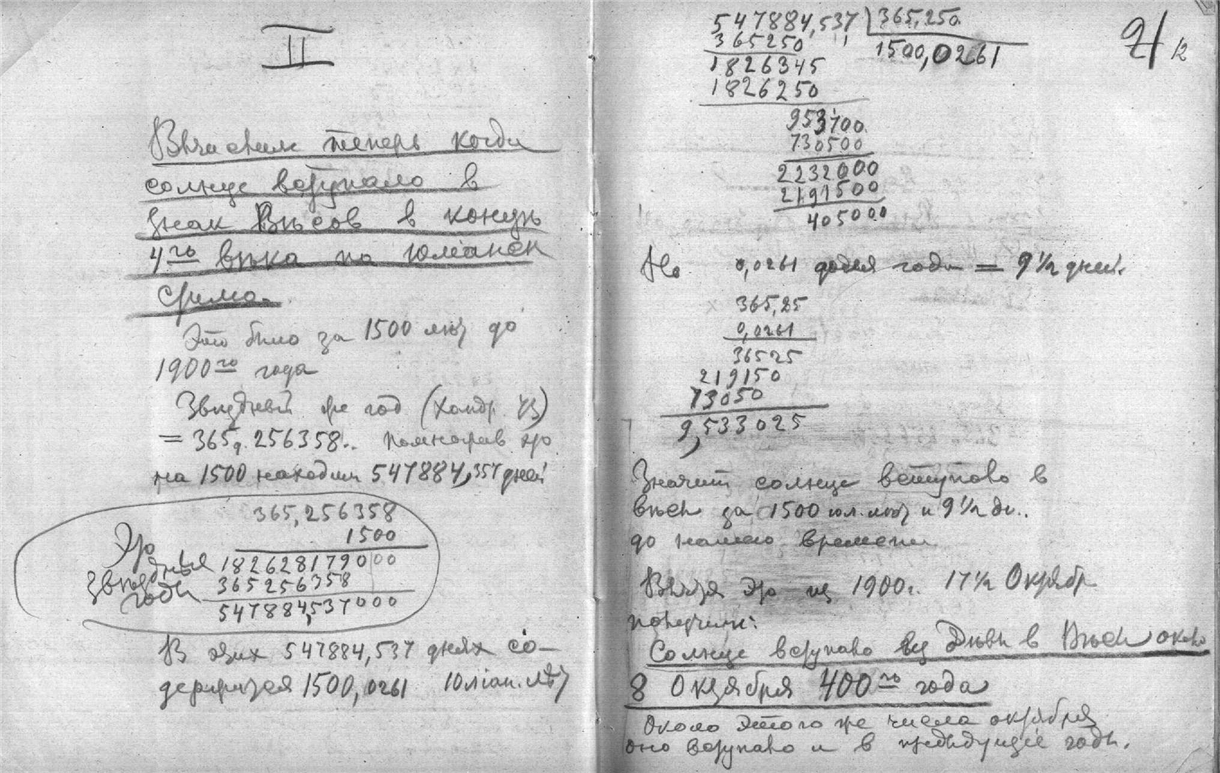 II
Вычислим теперь когда
солнце вступало в
знак Вѣсов в концѣ
4го вѣка по юлианск
стилю.
Это было за 1500 лѣт до
1900го года
Звѣздный же год (Хандр
= 365д. 256358.. помножив это
на 1500 находим 547884,357 дней
365,256358
1500
Это
182628179000
звѣздные
365256358
годы
547884,537000
В этих 547884,537 днях со-
держится 1500,0261 Юлиан. лѣт
21
12
547884,537 365,250
365250 1500,0261
1826345
1826250
953700
730500
2232000
2191500
405000
Но 0,0261 долей года = 9 1/2 дней.
365,25 x
0,0261
36525
219150
73050
9,533025
Значит солнце вступало в
вѣсы за 1500 юл. лѣт и 9 1/2 дн..
до нашего времени
Вычтя это из 1900г. 17 1/2 Октябр
получим:
Солнце вступало из Дѣвы в Вѣсы около
8 Октября 400го года
Около этого же числа октября
оно вступало и в предыдущие годы.